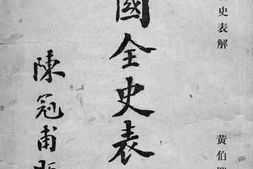 史表解
黃伯
國全史表
陳冠甫